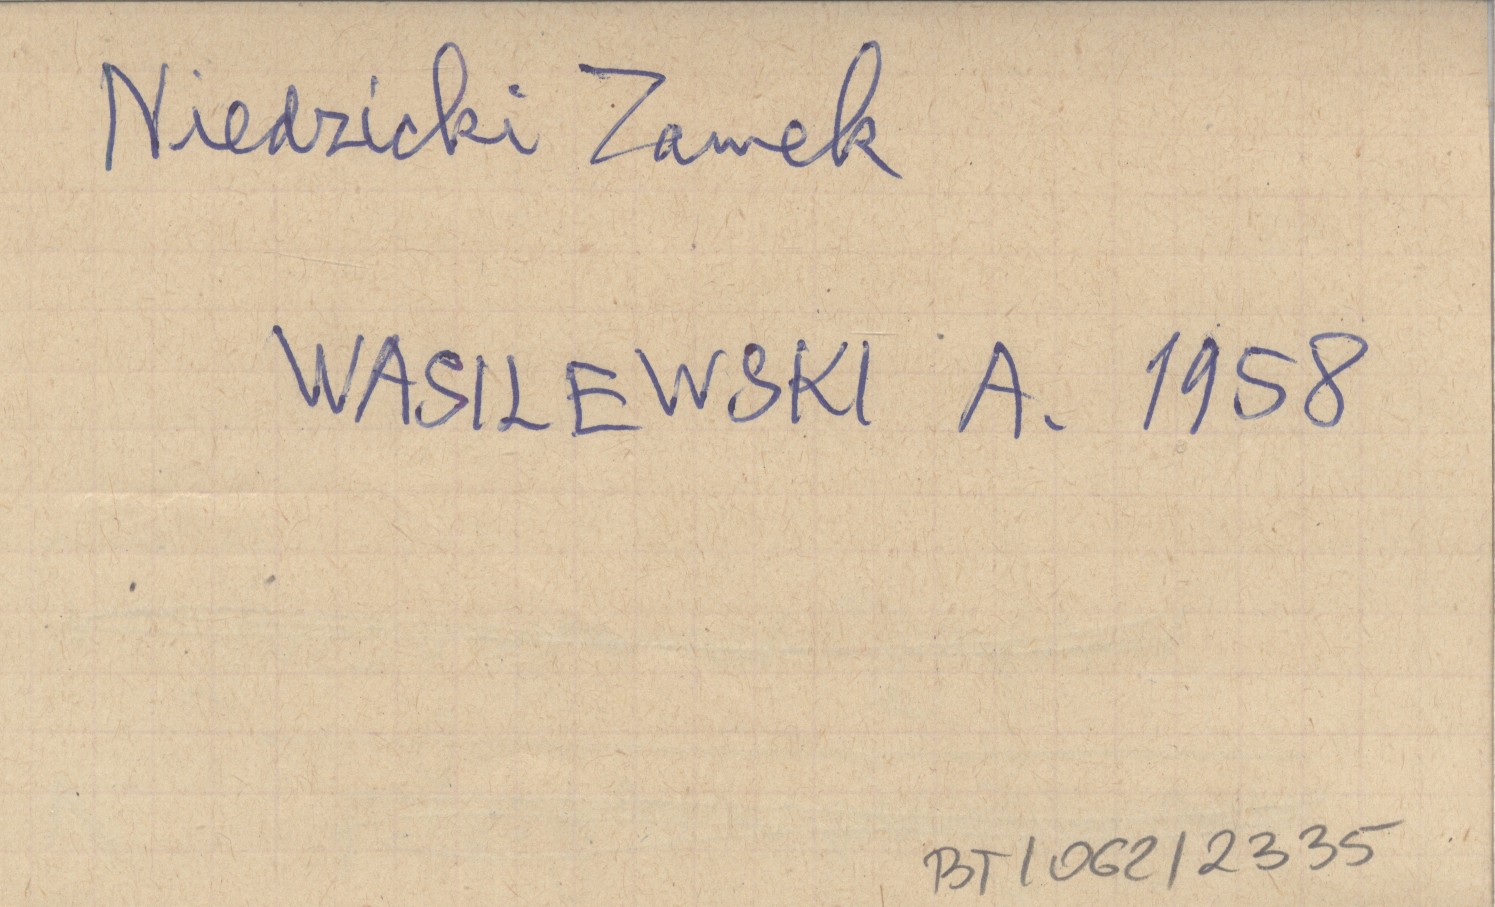 Niedzicki Zamek
WASILEWSKI A. 1958
BT/062/2335